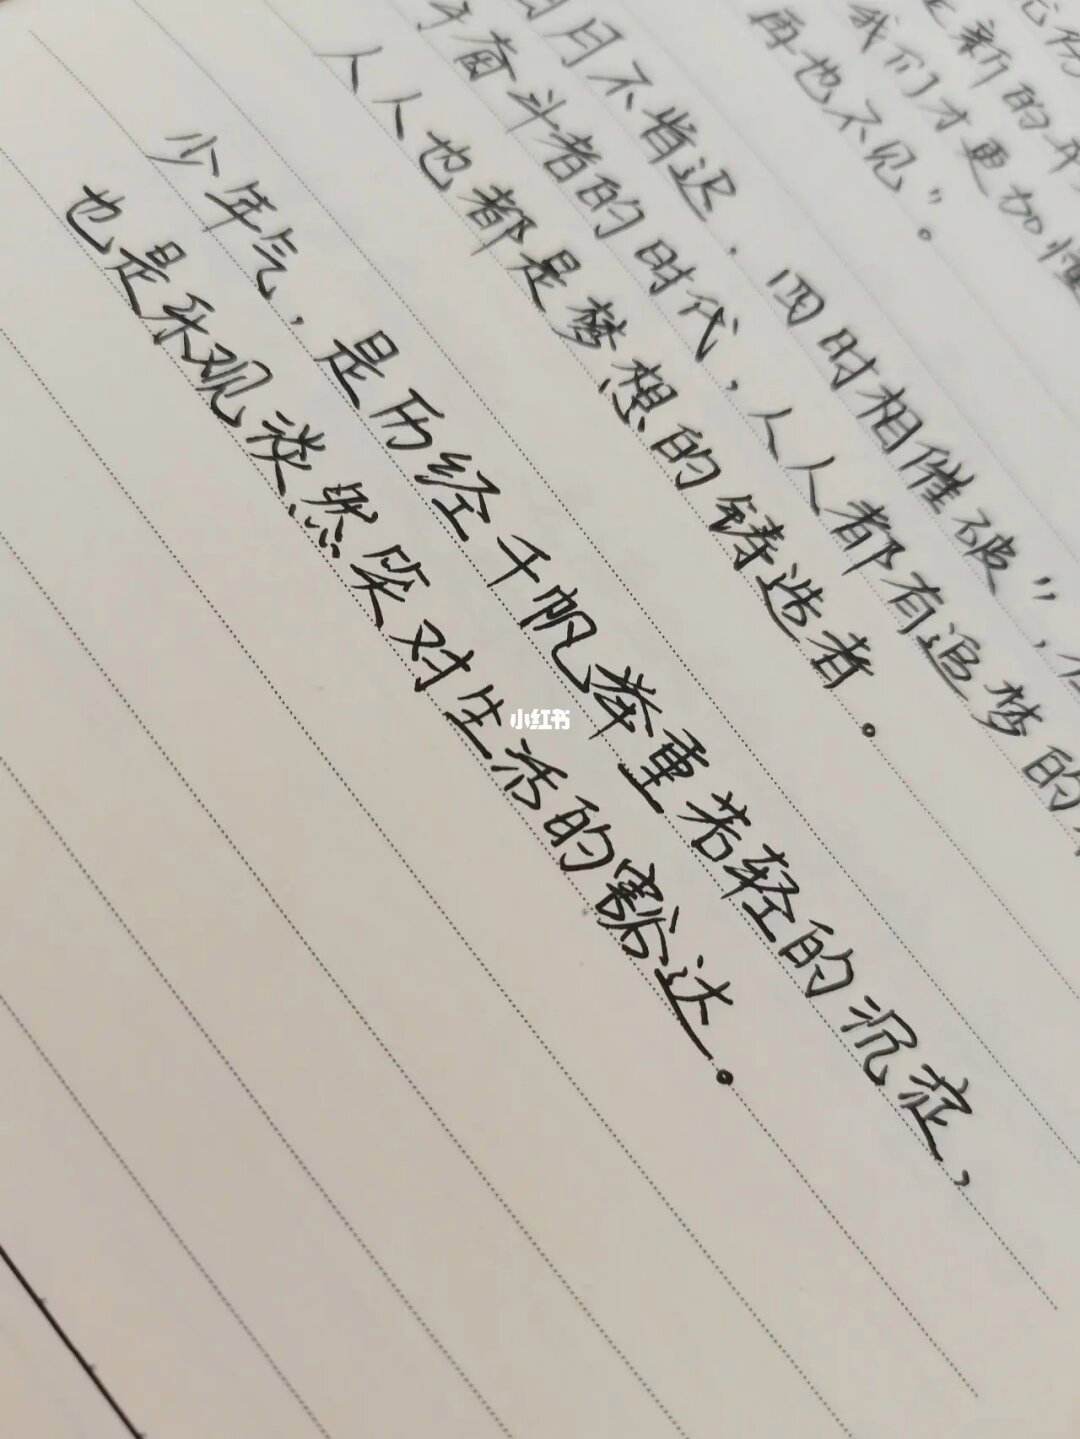 新的开
我们才更加懂
再也不见”。
日月不肯迟，四时相催破”，
于奋斗者的时代，人人都有追梦的
人人也都是梦想的铸造者。
少年气，是历经千帆举重若轻的沉淀，
也是乐观淡然笑对生活的豁达。
小红书